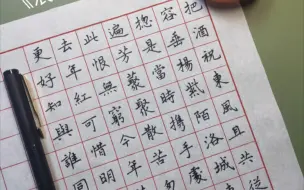 把酒祝東風且共從
容垂楊紫陌洛城
惣是當時携手處
遍芳藂聚散苦
此恨無窮今年
去年紅可惜明
更好知與誰同